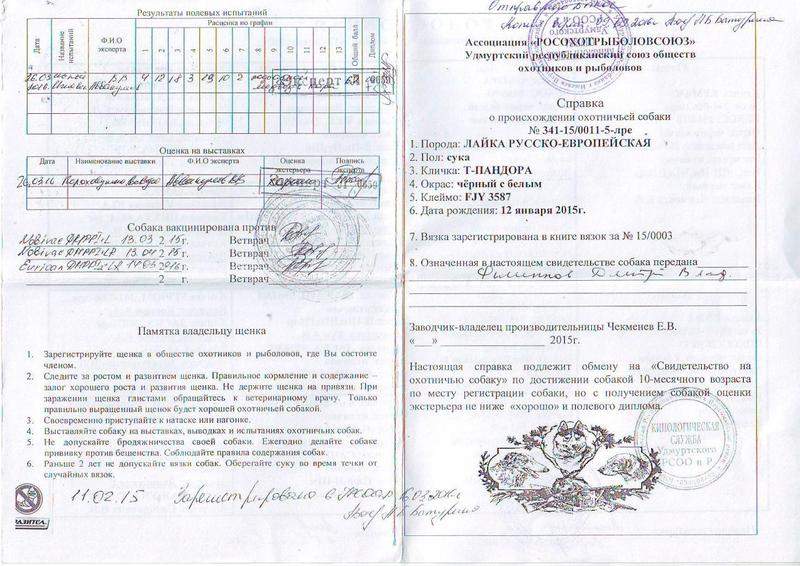 Результаты полевых испытаний
Дата
Название испытаний
Ф.И.О эксперта
Расценка по графам
1 2 3 4 5 6 7 8 9 10 11 12 13
Общий балл
Диплом
4 12 18 3 19 10 2
Оценка на выставках
Дата
Наименование выставки
Ф.И.О эксперта
Оценка экстерьера
Подпись эксперта
26.03.16
Хорошо
Собака вакцинирована против
Nobivac DHPPi+L 13.03 2 15 г. Ветврач
Nobivac DHPPi+LR 13.04 2 15 г. Ветврач
Eurican DHPPi2-LR 2016 г. Ветврач
2 г. Ветврач
Памятка владельцу щенка
1. Зарегистрируйте щенка в обществе охотников и рыболовов, где Вы состоите
членом.
2. Следите за ростом и развитием щенка. Правильное кормление и содержание –
залог хорошего роста и развития щенка. Не держите щенка на привязи. При
заражении щенка глистами обращайтесь к ветеринарному врачу. Только
правильно выращенный щенок будет хорошей охотничьей собакой.
3. Своевременно приступайте к натаске или нагонке.
4. Выставляйте собаку на выставках, выводках и испытаниях охотничьих собак.
5. Не допускайте бродяжничества своей собаки. Ежегодно делайте собаке
прививку против бешенства. Соблюдайте правила содержания собак.
6. Раньше 2 лет не допускайте вязки собак. Оберегайте суку во время течки от
случайных вязок.
11.02.15
Зарегистрировано в
Ассоциация «РОСОХОТРЫБОЛОВСОЮЗ»
Удмуртский республиканский союз обществ
охотников и рыболовов
Справка
о происхождении охотничьей собаки
№ 341-15/0011-5-лре
1. Порода: ЛАЙКА РУССКО-ЕВРОПЕЙСКАЯ
2. Пол: сука
3. Кличка: Т-ПАНДОРА
4. Окрас: чёрный с белым
5. Клеймо: FJY 3587
6. Дата рождения: 12 января 2015г.
7. Вязка зарегистрирована в книге вязок за № 15/0003
8. Означенная в настоящем свидетельстве собака передана
Филиппов Дмитр Влад.
Заводчик-владелец производительницы Чекменев Е.В.
«___» ____________________ 2015г.
Настоящая справка подлежит обмену на «Свидетельство на
охотничью собаку» по достижении собакой 10-месячного возраста
по месту регистрации собаки, но с получением собакой оценки
экстерьера не ниже «хорошо» и полевого диплома.
КИНОЛОГИЧЕСКАЯ
СЛУЖБА
Удмуртского
РСОО и Р